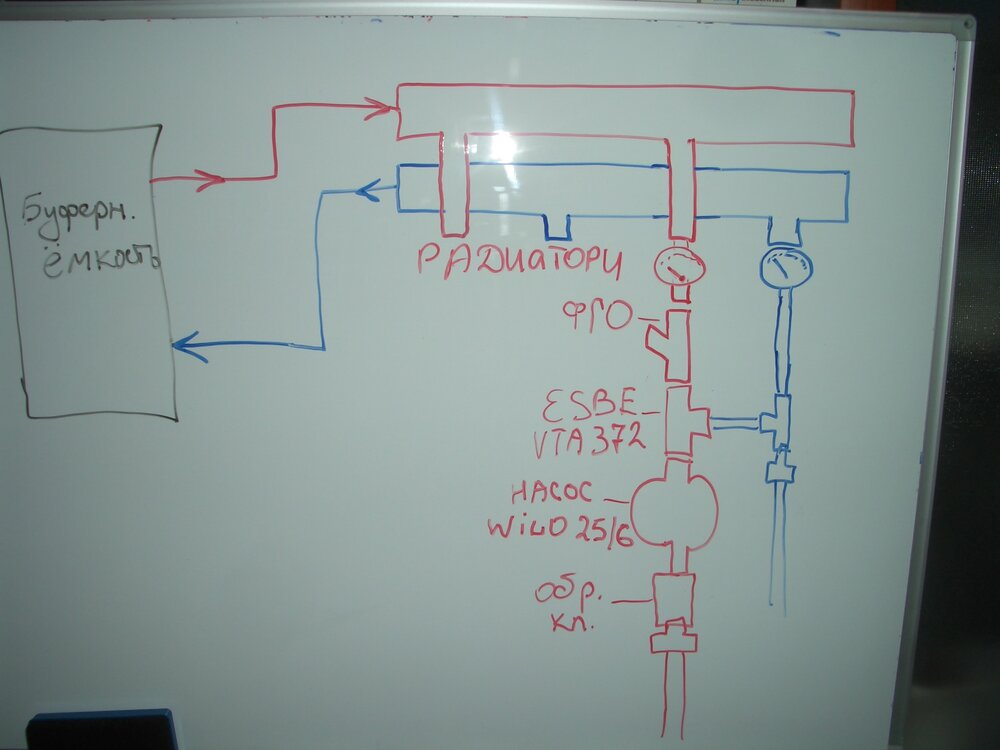 Буферн.
ёмкость
РАДИАТОРИ
ФГО
ESBE
VTA 372
НАСОС
WiLO 25/6
обр.
кл.